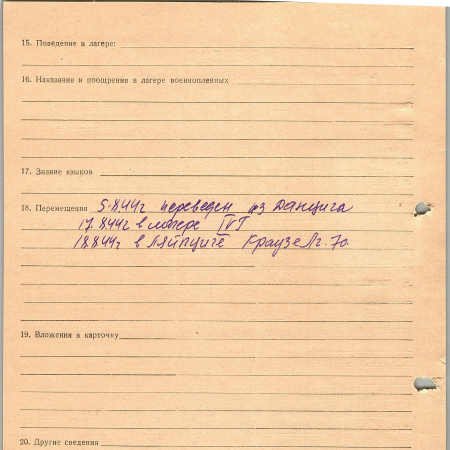 15. Поведение в лагере:
16. Наказания и поощрения в лагере военнопленных
17. Знание языков
18. Перемещения 5.8.44г переведен из Данцига
17.8.44г в лагере IVГ
18.8.44г в Ляйпциге Краузе Лг. 70
19. Вложения в карточку
20. Другие сведения